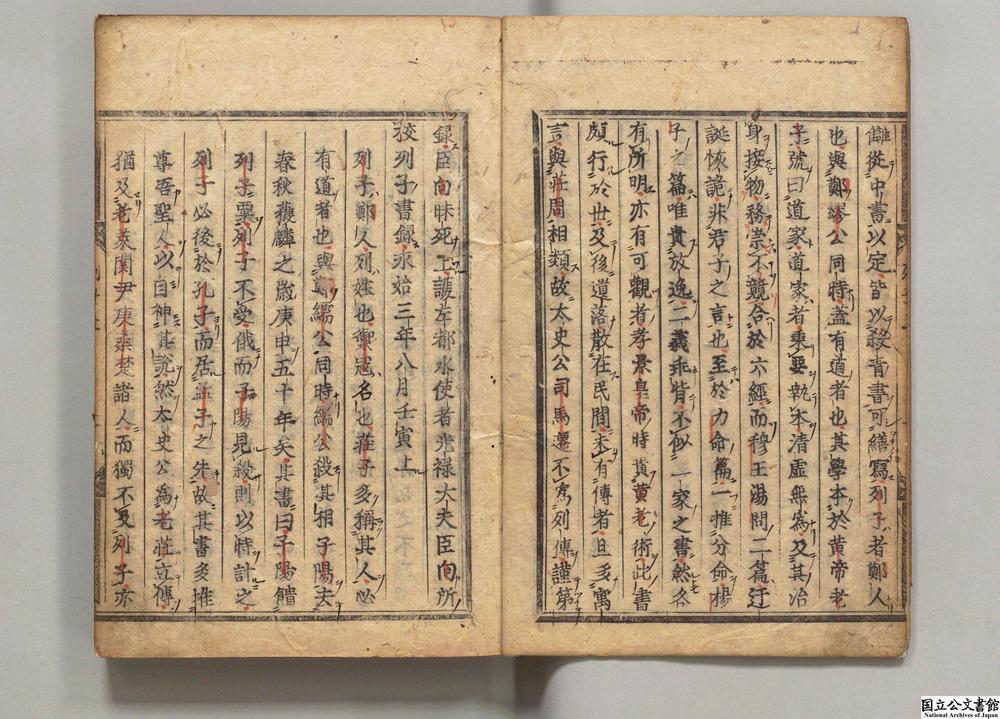 讎從中書以定皆以殺青書可繕寫列子者鄭人
也與鄭繆公同時蓋有道者也其學本於黃帝老
子號曰道家道家者秉要執本清虛無為及其治
身接物務崇不競合於六經而穆王湯問二篇迂
誕恢詭非君子之言也至於力命篇一推分命楊
子之篇唯貴放逸二義乖背不似一家之書然各
有所明亦有可觀者孝景皇帝時貴黃老術此書
頗行於世及後遺落散在民間未有傳者且多寓
言與莊周相類故太史公司馬遷不為列傳謹第
録臣向昧死上護左都水使者光禄大夫臣向所
校列子書録永始三年八月壬寅上
列子鄭人列姓也禦寇名也莊子多稱其人必
有道者也與鄭繻公同時繻公殺其相子陽去
春秋獲麟之歲庚申五十年矣其書曰子陽饋
列子粟列子不受俄而子陽見殺則以時計之
列子必後於孔子而居孟子之先故其書多推
尊吾聖人以自神其說然太史公為老莊立傳
猶及老萊關尹庚桑楚諸人而獨不及列子亦
国立公文書館
National Archives of Japan